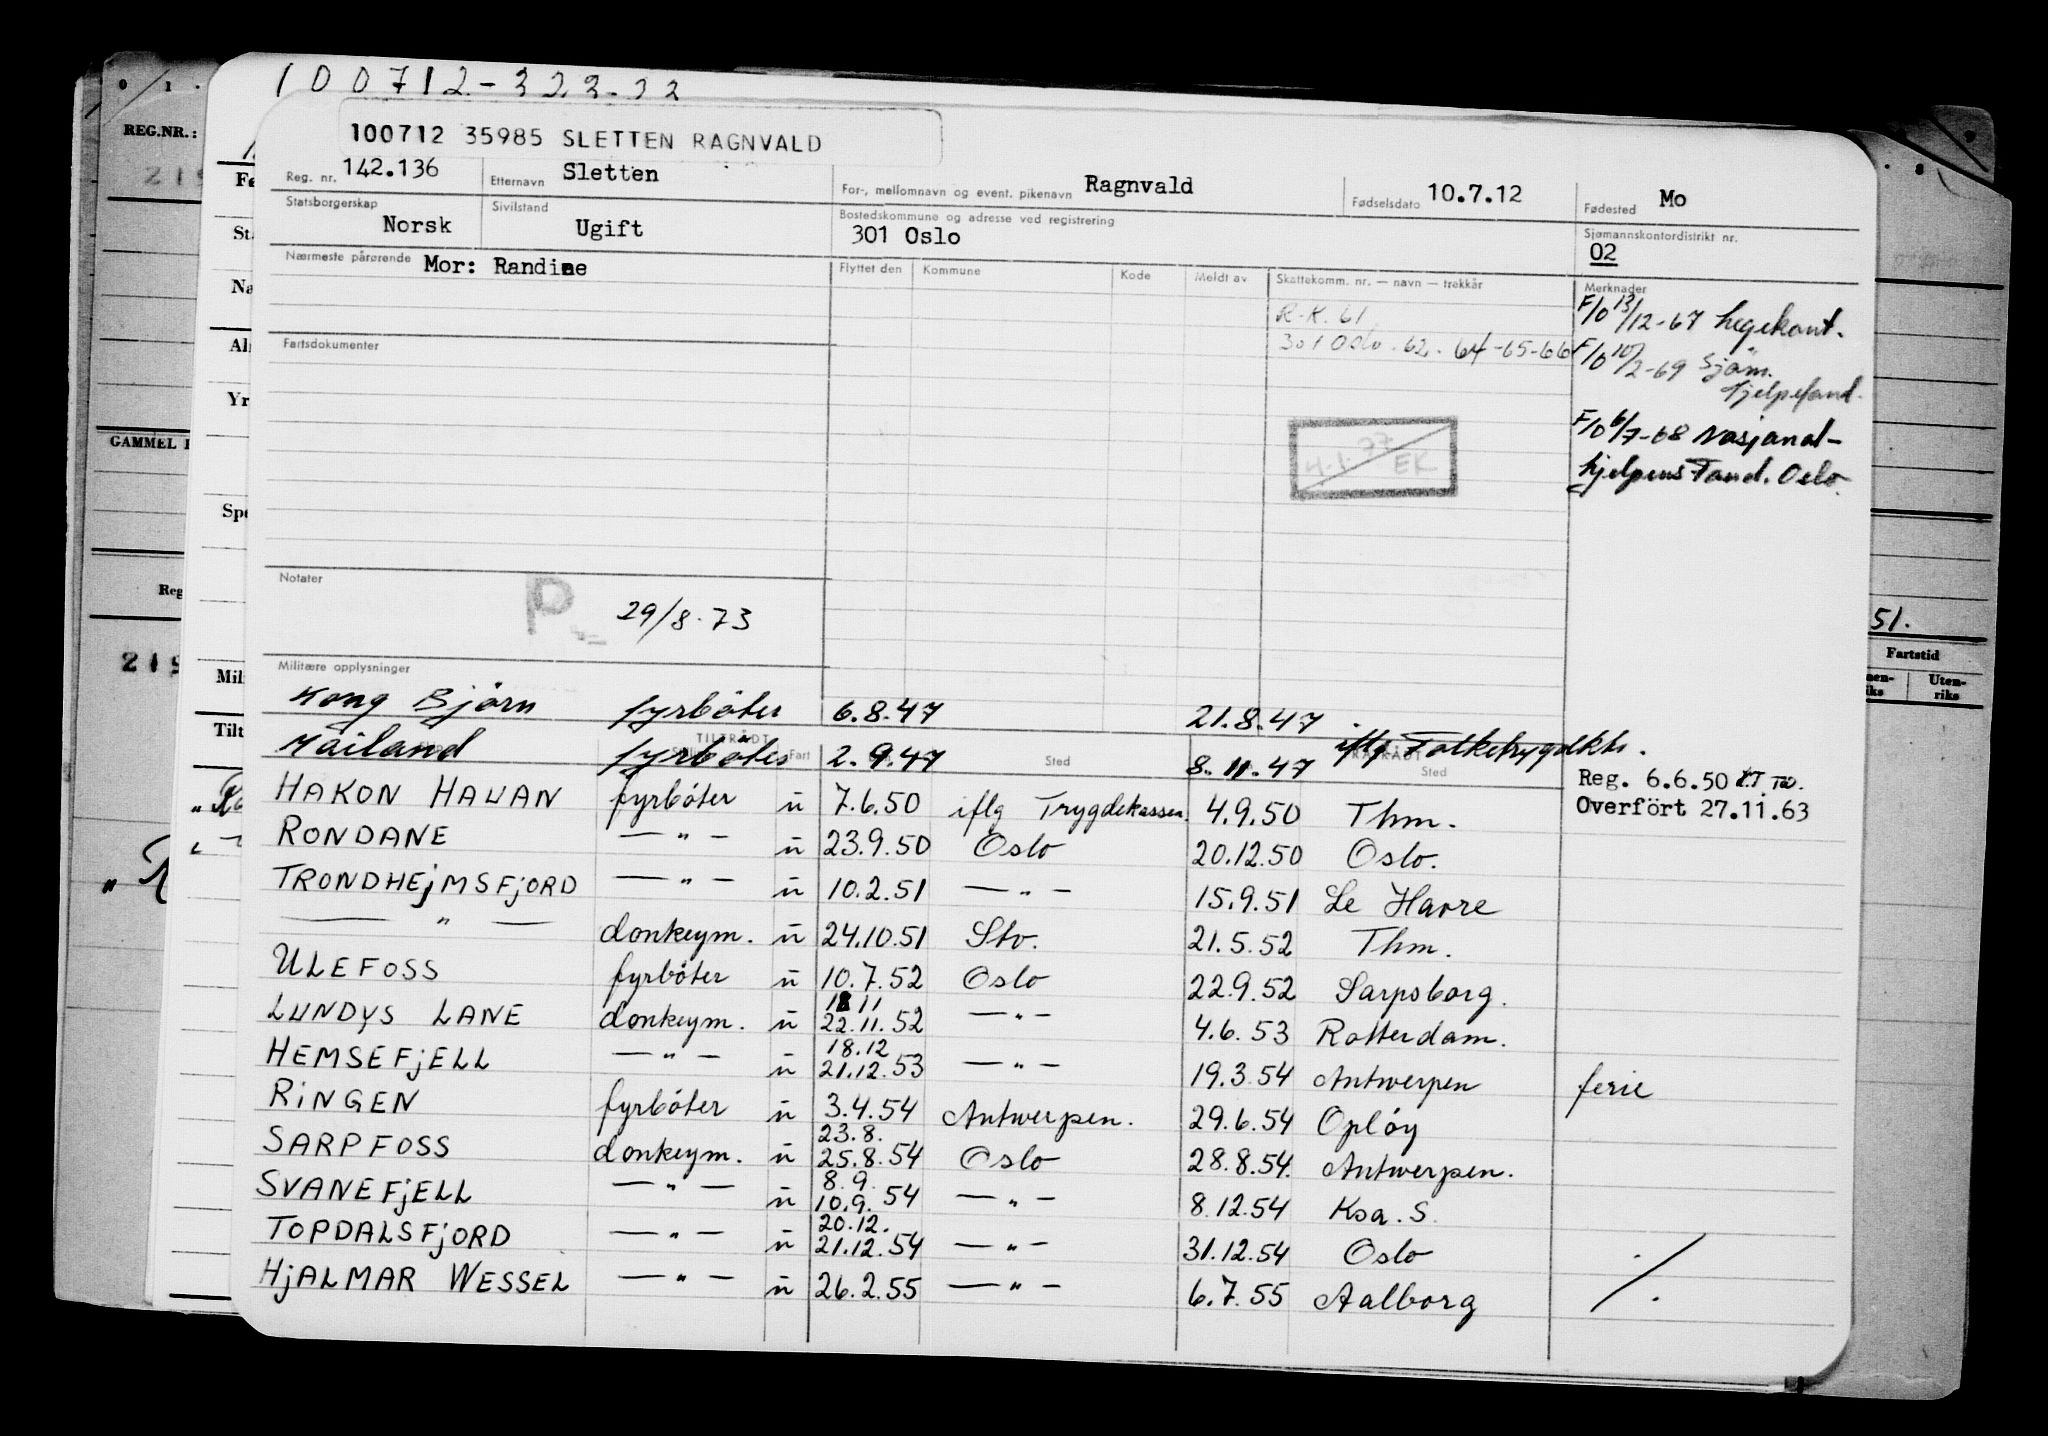 100712-323-32
100712 35985 SLETTEN RAGNVALD
Reg. nr. 142.136 Etternavn Sletten For-, mellomnavn og event. pikenavn Ragnvald Fødselsdato 10.7.12 Fødested Mo
Statsborgerskap Norsk Sivilstand Ugift Bostedskommune og adresse ved registrering 301 Oslo Sjømannskontordistrikt nr. 02
Nærmeste pårørende Mor: Randine Flyttet den Kommune Kode Meldt av Skattekomm. nr. — navn — trekkår Merknader
R.K. 61
301 Oslo. 62. 64-65-66
F/O 13/12-67 legekont.
F/O 10/2-69 Sjöm.
hjelpefond.
F/O 6/7-68 Nasjonal-
hjelpens Fond. Oslo.
Fartsdokumenter
4.1.77 EK
Notater
P 29/8.73
Militære opplysninger
Kong Björn fyrböter 6.8.47 21.8.47
TILTRÅDT
iflg Folketrygdkk.
Mailand fyrböter Fart 2.9.47 Sted 8.11.47 Sted
Reg. 6.6.50
Overfört 27.11.63
HAKON HAUAN fyrböter u 7.6.50 iflg Trygdekassen. 4.9.50 Thm.
RONDANE — " — u 23.9.50 Oslo 20.12.50 Oslo.
TRONDHEjMSFjORD — " — u 10.2.51 — " — 15.9.51 Le Havre
— " — donkeym. u 24.10.51 Stv. 21.5.52 Thm.
ULEFOSS fyrböter u 10.7.52 Oslo 22.9.52 Sarpsborg.
18 11
LUNDYS LANE donkeym. u 22.11.52 — " — 4.6.53 Rotterdam.
18.12
HEMSEFjELL — " — u 21.12.53 — " — 19.3.54 Antwerpen ferie
RiNGEN fyrböter u 3.4.54 Antwerpen. 29.6.54 Opløy
23.8.
SARPFOSS donkeym. u 25.8.54 Oslo 28.8.54. Antwerpen.
8.9.
SVANEFjELL — " — u 10.9.54 — " — 8.12.54 Ksa. S.
20.12.
TOPDALSFjORD — " — u 21.12.54 — " — 31.12.54 Oslo
HjALMAR WESSEL — " — u 26.2.55 — " — 6.7.55 Aalborg ./.
REG.NR.:
GAMMEL
Reg
219
51.
Fartstid
Uten-
riks